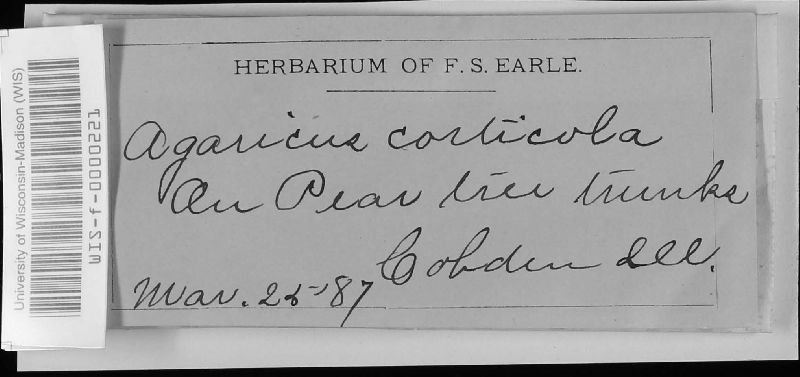 University of Wisconsin-Madison (WIS)
WIS-f-0000221
HERBARIUM OF F. S. EARLE.
Agaricus corticola
On Pear tree trunks
Cobden Ill.
Mar. 25-'87